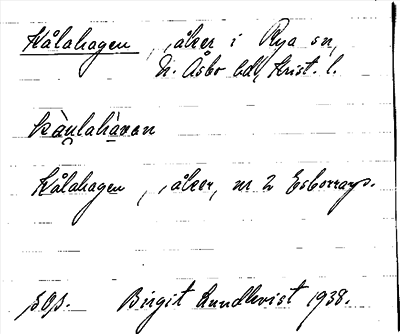 Kålahagen, åker i Rya sn,
N. Åsbo hd, Krist. l.
kằulahàɤan
Kålahagen, åker, nr 2 Esborrarp.
sOp. Birgit Lundkvist 1938.